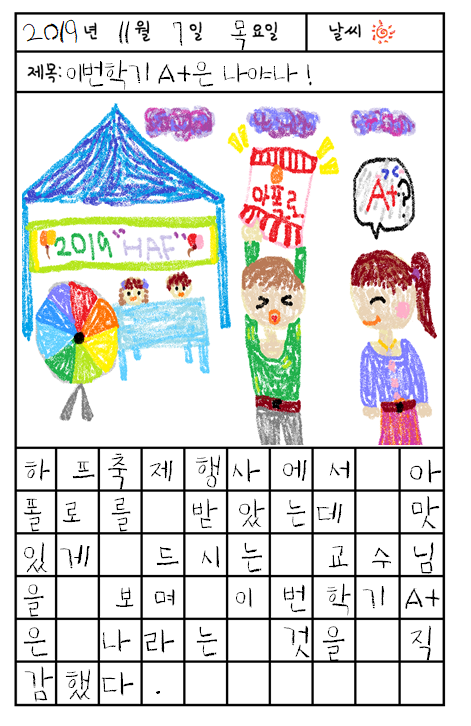 2019년 11월 7일 목요일 날씨
제목: 이번학기 A+은 나야나!
아폴로
A+?
2019 "HAF"
하프축제행사에서 아
폴로를 받았는데 맛
있게 드시는 교수님
을 보며 이번학기 A+
은 나라는 것을 직
감했다.